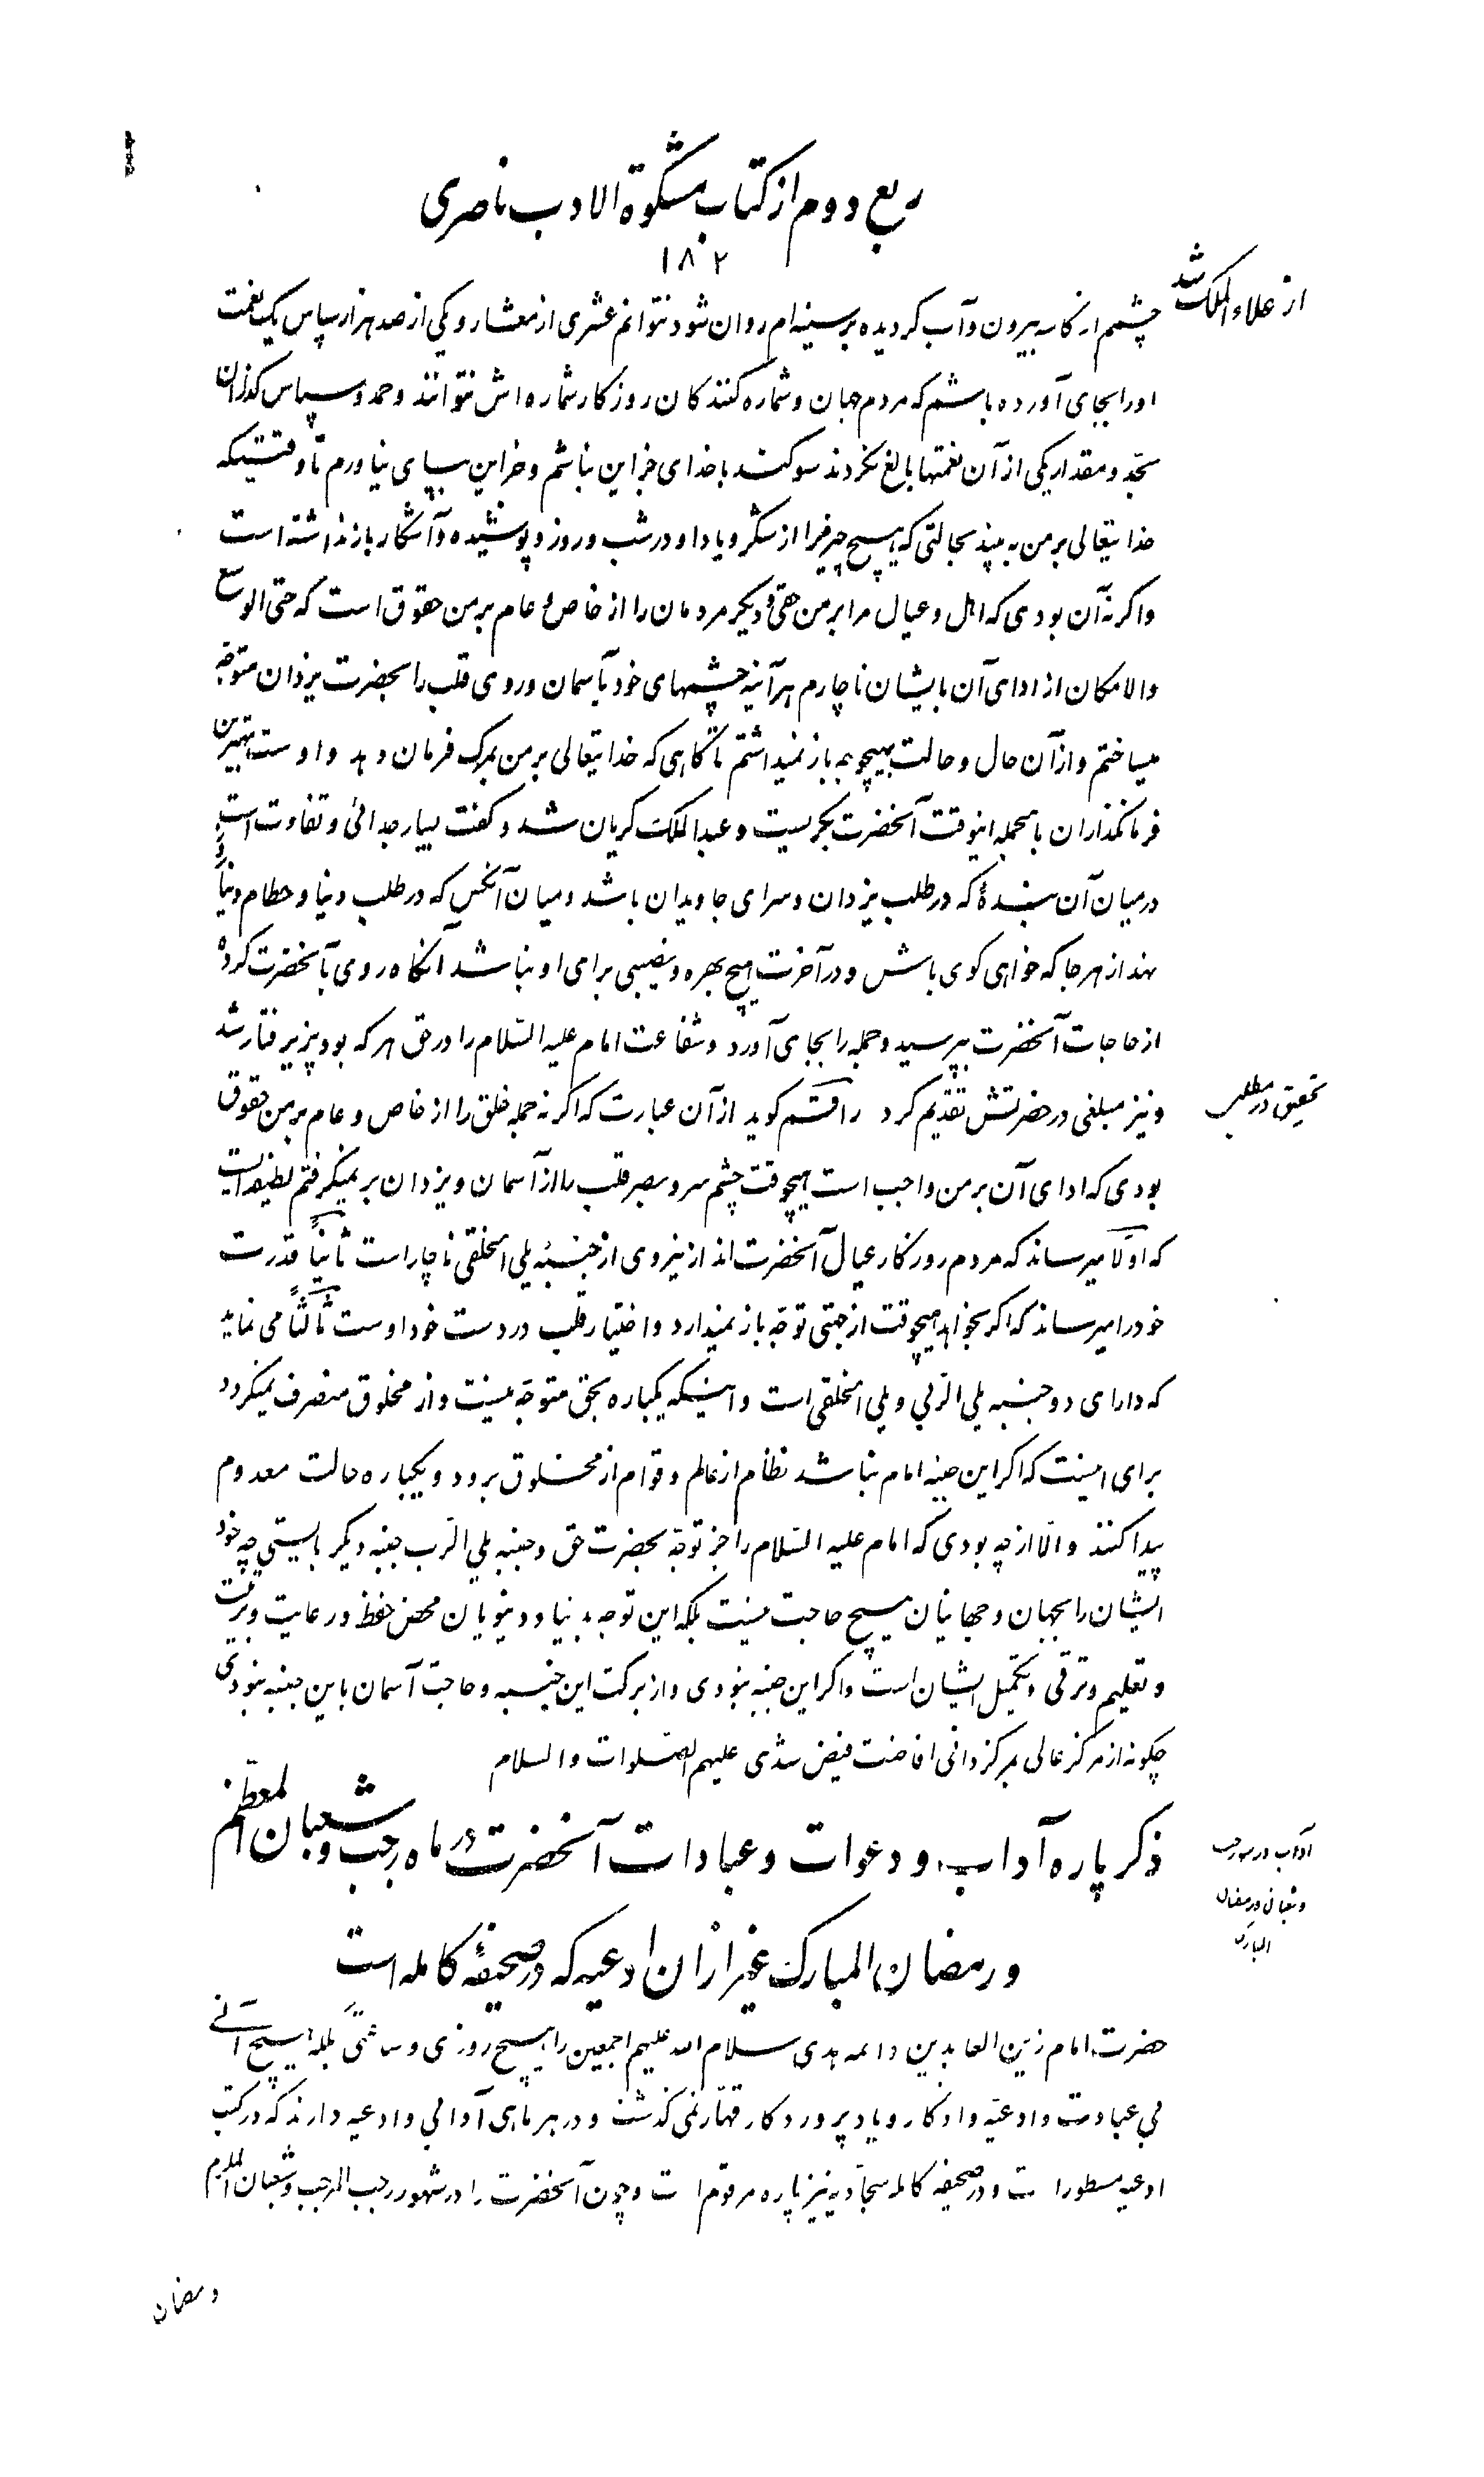 ربع دوم از کتاب مشکوة الادب ناصری
۱۸۰۲
چشمم از کاسه بیرون و آب کردیده بر سینه‌ام روان شود نتوانم عشری از معشار و یکی از صد هزار سپاس یک نعمت
او را بجای آورده باشم که مردم جهان و شماره کنندکان روزکار شماره‌اش نتوانند و حمد و سپاس کذاران
بحد و مقدار یکی از آن نعمتها بالغ نکردند سوکند با خدای جز این نباشم و جز این بپای نیاورم تا وقتیکه
خدا یتعالی بر من به بیند بحالتی که هیچ چیز مرا از شکر و یاد او در شب و روز و پوشیده و آشکار باز نداشته است
واکر نه آن بودی که اهل و عیال مرا بر من حقی و دیکر مردمان را از خاص و عام بر من حقوق است که حتی الوسع
والامکان از ادای آن بایشان ناچارم هر آینه چشمهای خود بآسمان و روی قلب را بحضرت یزدان متوجه
میساختم و از آن حال و حالت بهیچوجه باز نمیداشتم تا کاهی که خدا یتعالی بر من بمرک فرمان دهد و اوست بهترین
فرمانکذاران بالجمله اینوقت آنحضرت بکریست و عبدالملک کریان شد و کفت بسیار جدائی و تفاوت است
در میان آن بندۀ که در طلب یزدان و سرای جاویدان باشد و میان آنکس که در طلب دنیا و حطام دنیا
از هر جا که خواهی کوی باش و در آخرت هیچ بهره و نصیبی برای او نباشد آنکاه روی بآنحضرت کرده
از حاجات آنحضرت بپرسید و جمله را بجای آورد و شفاعت امام علیه السّلام را در حق هر که بود پذیرفتار شد
و نیز مبلغی در حضرتش تقدیم کرد راقم کوید از آن عبارت که اکر نه جمله خلق را از خاص و عام بر من حقوق
بودی که ادای آن بر من واجب است هیچوقت چشم سر و بصر قلب را از آسمان و یزدان بر نمیکرفتم لطیفه‌ایست
که اوّلاً میرساند که مردم روزکار عیال آنحضرت‌اند از ینروی از جنبۀ یلی الخلقی ناچار است ثانیاً قدرت
خود را میرساند که اکر بخواهد هیچوقت از حق توجّه باز نمیدارد و اختیار قلب در دست خود اوست ثالثاً می نماید
که دارای دو جنبه یلی الرّبی و یلی الخلقی است و اینکه یکباره بحق متوجّه نیست و از مخلوق منصرف نمیکردد
برای اینست که اکر این جنبه امام نباشد نظام از عالم و قوام از مخلوق برود و یکباره حالت معدوم
پیدا کنند و الّا از چه بودی که امام علیه السّلام را جز توجّه بحضرت حق و جنبه یلی الرّب جنبه دیکر بایستی چه خود
ایشان را بجهان و جهانیان هیچ حاجت نیست بلکه این توجه بدنیا و دنیویان محض حفظ و رعایت و تربیت
و تعلیم و ترقی و تکمیل ایشان است و اکر این جنبه نبودی و از برکت این جنبه و حاجت آسمان باین جنبه نبودی
چکونه از مرکز عالی بمرکز دانی افاضت فیض شدی علیهم الصّلوات والسلام
ذکر پاره آداب و دعوات و عبادات آنحضرت در ماه رجب و شعبان المعظّم
و رمضان المبارک غیر از آن ادعیه که در صحیفۀ کامله است
حضرت امام زین العابدین و ائمه هدی سلام الله علیهم اجمعین را هیچ روزی و ساعتی بلکه هیچ آنی
بی عبادت و ادعیّه و اذکار و یاد پروردکار قهّار نمی کذشت و در هر ماهی آدابی و ادعیه دارند که در کتب
ادعیه مسطور است و در صحیفه کامله سجّادیه نیز پاره مرقوم است و چون آنحضرت را در شهور رجب المرجب و شعبان المکرم
و رمضان
تحقیق در مطلب
آداب در رجب
و شعبان و رمضان
المبارک